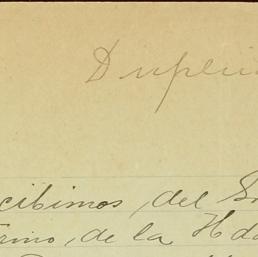 Duplic
cibimos, del Sr
rmo, de la Hda